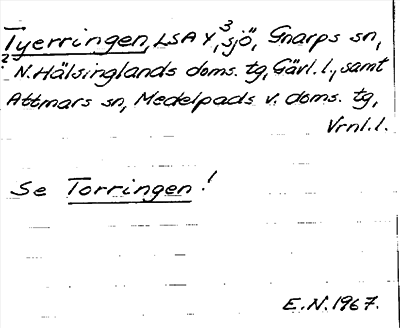 Tyerringen, LSA Y, 3 sjö, Gnarps sn,
2 N. Hälsinglands doms. tg, Gävl. l., samt
Attmars sn, Medelpads v. doms. tg,
Vrnl. l.
Se Torringen!
E.N. 1967.